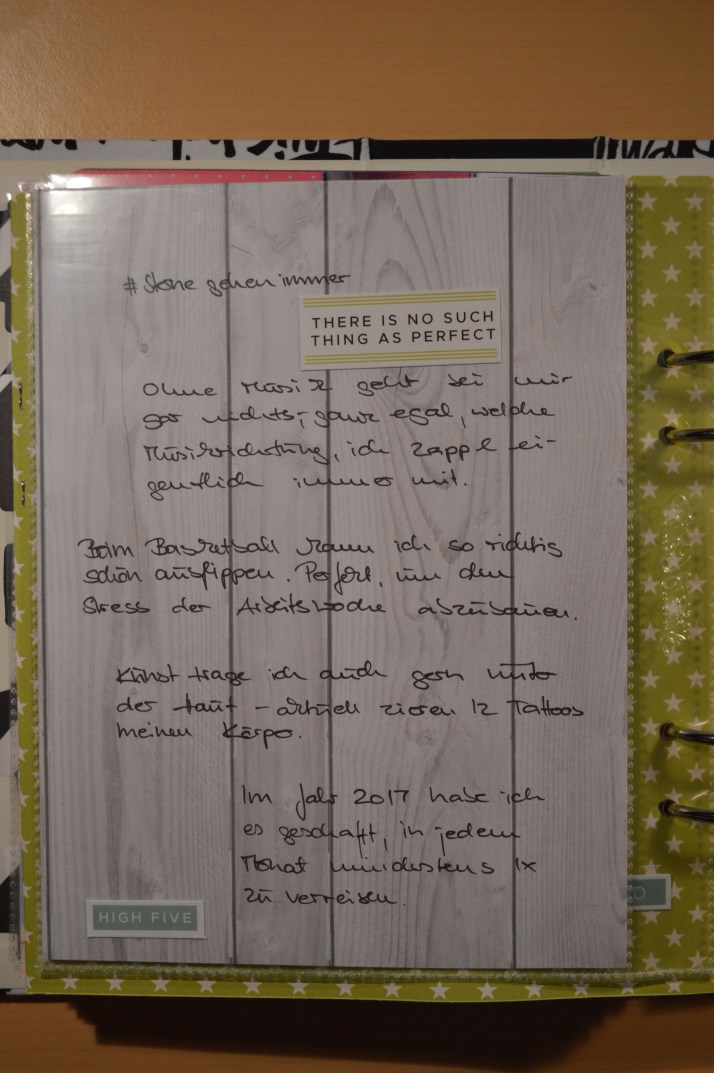 #Sterne gehen immer
THERE IS NO SUCH
THING AS PERFECT
Ohne Musik geht bei mir
gar nichts, ganz egal, welche
Musikrichtung, ich zappel ei-
gentlich immer mit.
Beim Basketball kann ich so richtig
schön ausflippen. Perfekt, um den
Stress der Arbeitswoche abzubauen.
Kunst trage ich auch gern unter
der Haut – aktuell zieren 12 Tattoos
meinen Körper.
Im Jahr 2017 habe ich
es geschafft, in jedem
Monat mindestens 1x
zu verreisen.
HIGH FIVE